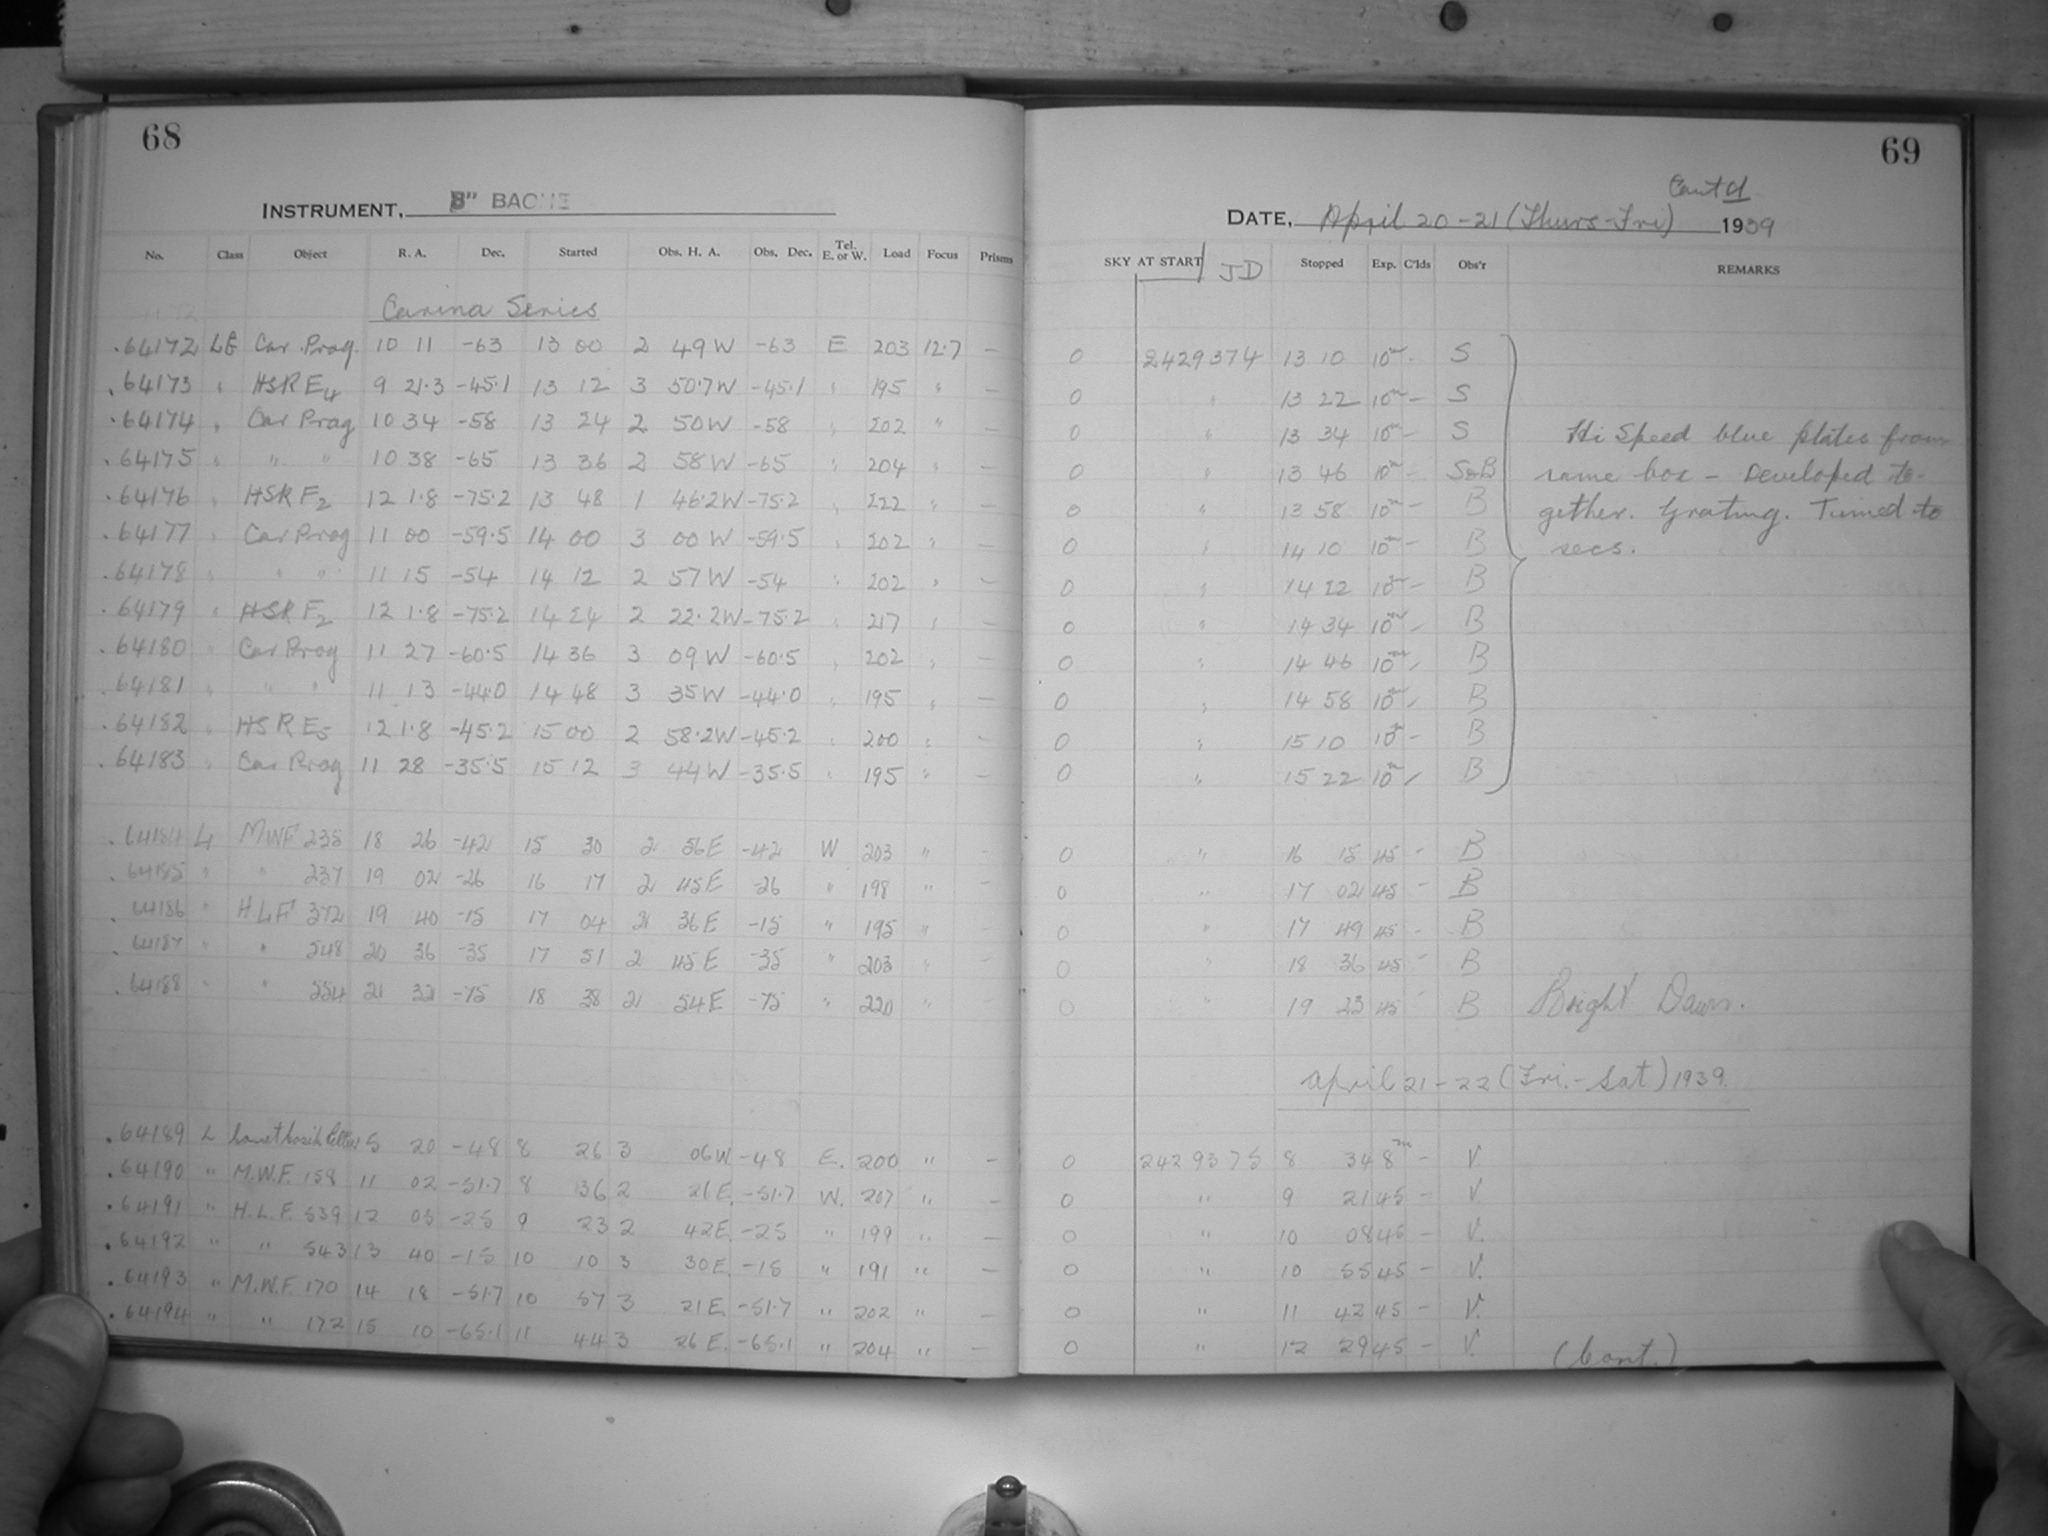 68
INSTRUMENT, B" BACHE
No. Class Object R. A. Dec. Started Obs. H. A. Obs. Dec. Tel. E. or W. Load Focus Prisms
Carina Series
.64172 Car. Prog. 10 11 -63 13 00 2 49 W -63 E 203 12.7 —
.64173 " HSR E4 9 21.3 -45.1 13 12 3 50.7 W -45.1 " 195 " —
.64174 " Car Prog 10 34 -58 13 24 2 50 W -58 " 202 " —
.64175 " " " 10 38 -65 13 36 2 58 W -65 " 204 " —
.64176 " HSR F2 12 1.8 -75.2 13 48 1 46.2 W -75.2 " 222 " —
.64177 " Car Prog 11 00 -59.5 14 00 3 00 W -59.5 " 202 " —
.64178 " " " 11 15 -54 14 12 2 57 W -54 " 202 " —
.64179 " HSR F2 12 1.8 -75.2 14 24 2 22.2 W -75.2 " 217 " —
.64180 " Car Prog 11 27 -60.5 14 36 3 09 W -60.5 " 202 " —
.64181 " " " 11 13 -44.0 14 48 3 35 W -44.0 " 195 " —
.64182 " HSR E5 12 1.8 -45.2 15 00 2 58.2 W -45.2 " 200 " —
.64183 " Car Prog 11 28 -35.5 15 12 3 44 W -35.5 " 195 " —
.64184 L MWF 235 18 26 -42 15 30 2 56 E -42 W 203 " —
.64185 " " 237 19 02 -26 16 17 2 45 E -26 " 198 " —
.64186 " H.L.F 372 19 40 -15 17 04 2 36 E -15 " 195 " —
.64187 " " 548 20 36 -35 17 51 2 45 E -35 " 203 " —
.64188 " " 554 21 32 -75 18 38 2 54 E -75 " 220 " —
.64189 L 5 20 -48 8 26 3 06 W -48 E. 200 " —
.64190 " M.W.F. 158 11 02 -51.7 8 36 2 21 E. -51.7 W. 207 " —
.64191 " H.L.F. 539 12 05 -25 9 23 2 42 E. -25 " 199 " —
.64192 " " 543 13 40 -15 10 10 3 30 E. -15 " 191 " —
.64193 " M.W.F. 170 14 18 -51.7 10 57 3 21 E. -51.7 " 202 " —
.64194 " " 172 15 10 -65.1 11 44 3 26 E. -65.1 " 204 " —
69
Cont'd
DATE, April 20-21 (Thurs-Fri) 1939
SKY AT START JD Stopped Exp. C'lds Obs'r REMARKS
0 2429374 13 10 10m - S
0 " 13 22 10m - S
0 " 13 34 10m - S
0 " 13 46 10m - S&B
0 " 13 58 10m - B
0 " 14 10 10m - B
0 " 14 22 10m - B
0 " 14 34 10m - B
0 " 14 46 10m - B
0 " 14 58 10m - B
0 " 15 10 10m - B
0 " 15 22 10m - B
Hi Speed blue plates from
same box - Developed to-
gether. Grating. Timed to
secs.
0 " 16 15 45 - B
0 " 17 02 45 - B
0 " 17 49 45 - B
0 " 18 36 45 - B
0 " 19 23 45 - B Bright Dawn.
April 21-22 (Fri.-Sat) 1939.
0 2429375 8 34 8m - V.
0 " 9 21 45 - V
0 " 10 08 45 - V.
0 " 10 55 45 - V.
0 " 11 42 45 - V.
0 " 12 29 45 - V.
(Cont.)